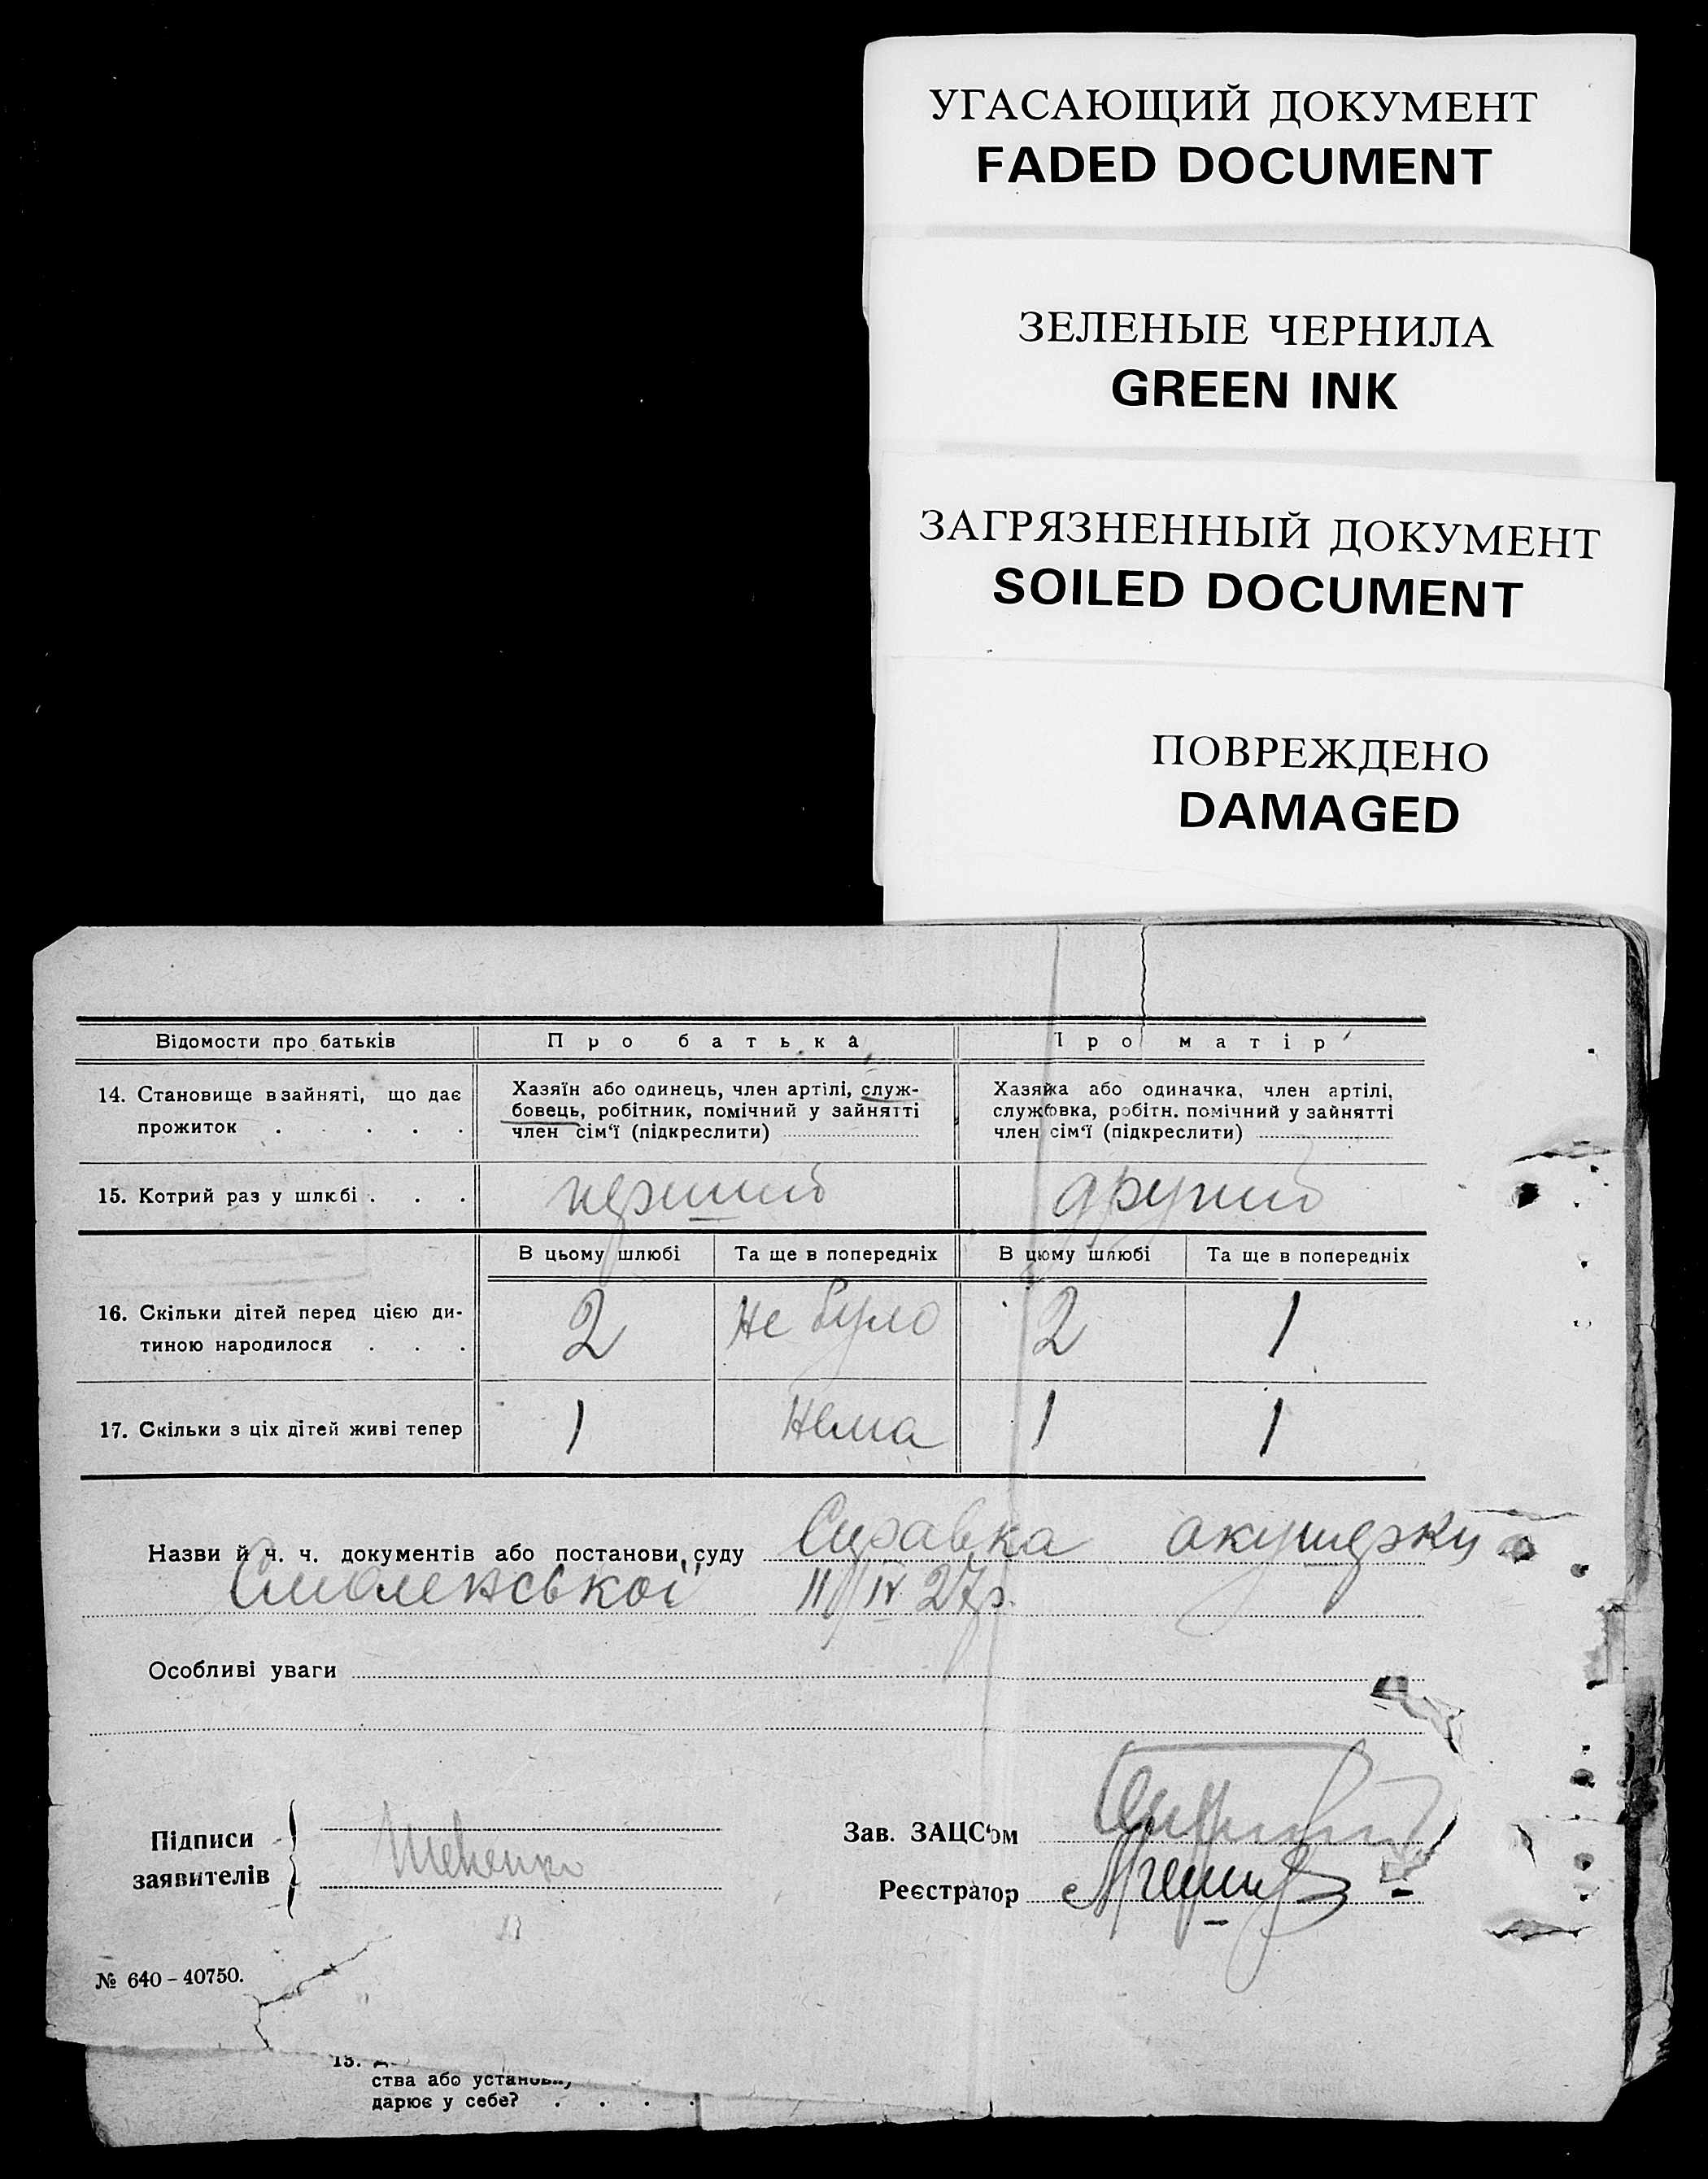 УГАСАЮЩИЙ ДОКУМЕНТ
FADED DOCUMENT
ЗЕЛЕНЫЕ ЧЕРНИЛА
GREEN INK
ЗАГРЯЗНЕННЫЙ ДОКУМЕНТ
SOILED DOCUMENT
ПОВРЕЖДЕНО
DAMAGED
Відомости про батьків Про батька Про матір
14. Становище в зайняті, що дає прожиток . . . . .
Хазяїн або одинець, член артілі, служ-
бовець, робітник, помічний у зайнятті
член сім‘ї (підкреслити)
Хазяйка або одиначка, член артілі,
службовка, робітн. помічний у зайнятті
член сім‘ї (підкреслити)
15. Котрий раз у шлюбі . . . перший другий
В цьому шлюбі Та ще в попередніх В цюму шлюбі Та ще в попередніх
16. Скільки дітей перед цією ди-
тиною народилося . . . 2 не було 2 1
17. Скільки з ціх дітей живі тепер 1 нема 1 1
Назви й ч. ч. документів або постанови суду Справка акушерки
Смоленської 11/IV 27р.
Особливі уваги
Підписи
заявителів
Зав. ЗАЦС‘ом
Реєстратор
№ 640-40750.
15.
ства або установи,
дарює у себе? . . . .